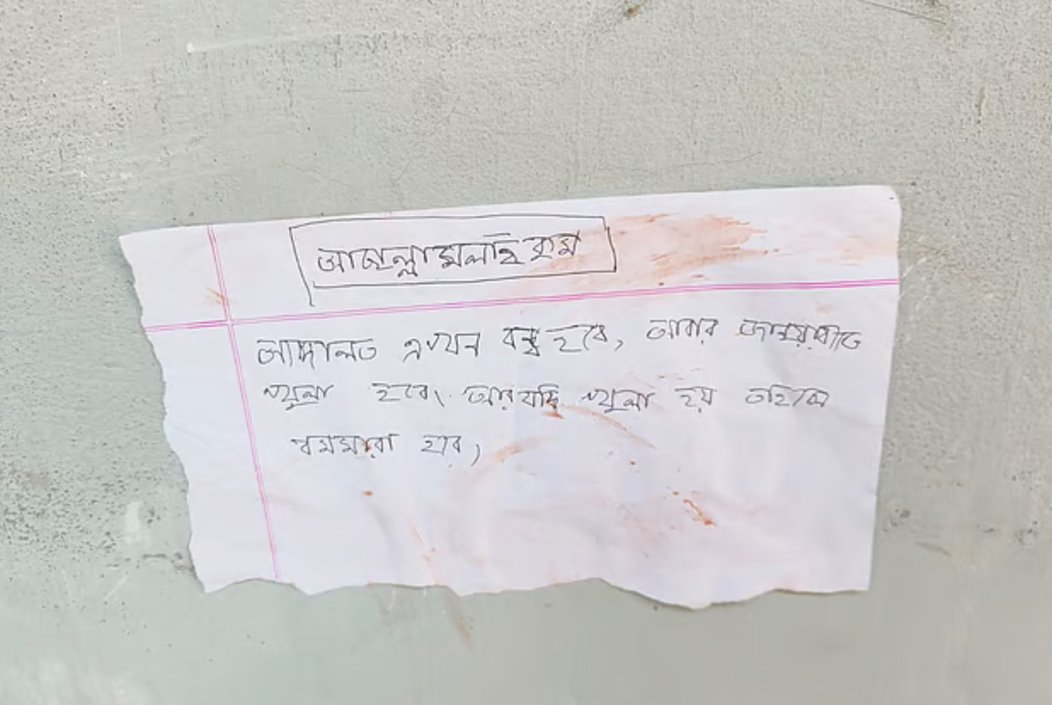 আছাল্লামলাইকুম
আদালত এখন বন্ধ হবে, আবার জানুয়ারীতে
খুলা হবে। আর যদি খুলা হয় তাহলে
বমমারা হবে,